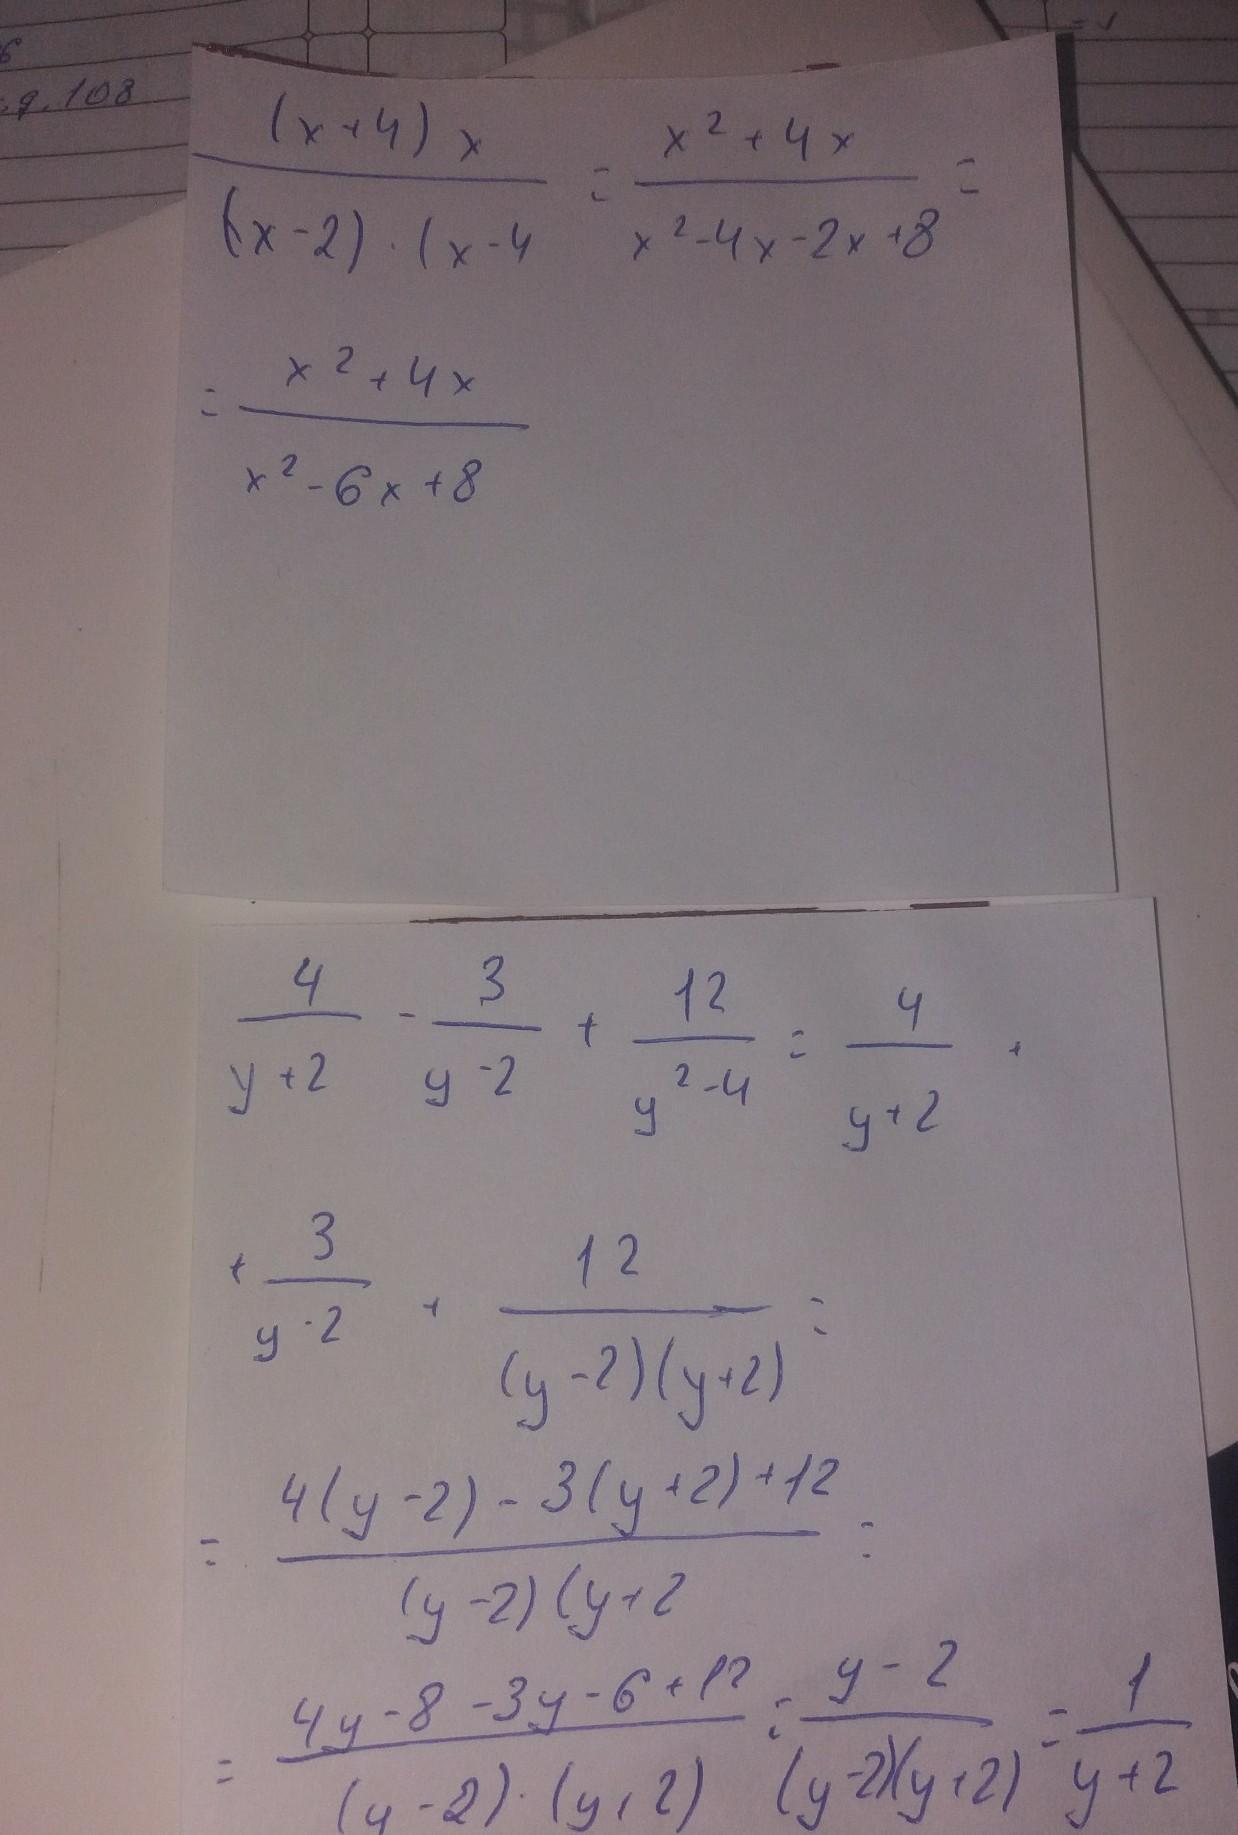 6
(x+4)x / (x-2)·(x-4 = x²+4x / x²-4x-2x+8 =
= x²+4x / x²-6x+8
4 / y+2 - 3 / y-2 + 12 / y²-4 = 4 / y+2 +
+ 3 / y-2 + 12 / (y-2)(y+2) =
= 4(y-2)-3(y+2)+12 / (y-2)(y+2 =
= 4y-8-3y-6+12 / (y-2)·(y+2) = y-2 / (y-2)(y+2) = 1 / y+2